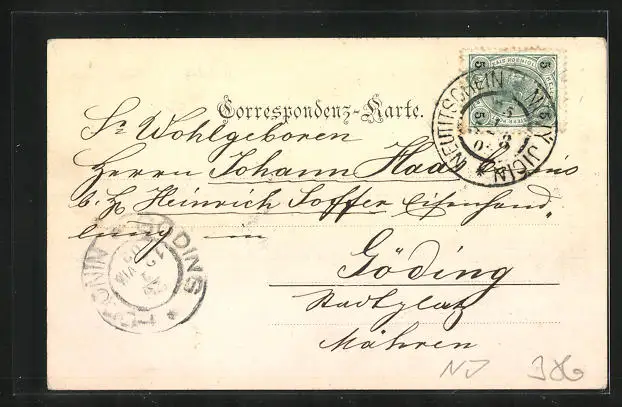 Correspondenz-Karte.
Sr Wohlgeboren
Herrn Johann Haas
b. H. Heinrich Soffer Eisenhand„
lung in
Göding
Stadtplatz
Mähren
NEUTITSCHEIN NOVÝ JIČIN
5 5
5 5
GÖDING
HODONIN
NJ 386